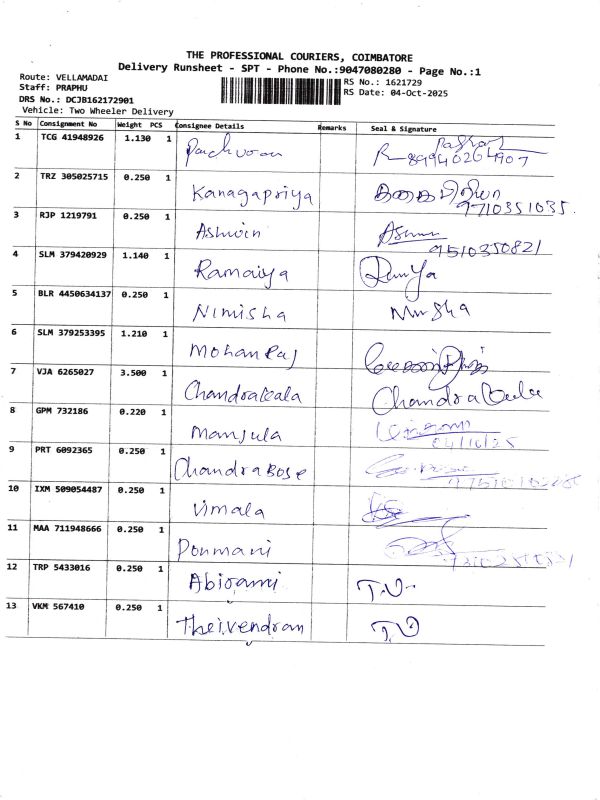 THE PROFESSIONAL COURIERS, COIMBATORE
Delivery Runsheet - SPT - Phone No.:9047080280 - Page No.:1
Route: VELLAMADAI
RS No.: 1621729
Staff: PRAPHU
RS Date: 04-Oct-2025
DRS No.: DCJB162172901
Vehicle: Two Wheeler Delivery
S No Consignment No Weight PCS Consignee Details Remarks Seal & Signature
1 TCG 41948926 1.130 1
2 TRZ 305025715 0.250 1 Kanagapriya
9710351035
3 RJP 1219791 0.250 1 Ashwin
9510350821
4 SLM 379420929 1.140 1 Ramaiya
5 BLR 4450634137 0.250 1 Nimisha
6 SLM 379253395 1.210 1 Mohan Raj
7 VJA 6265027 3.500 1 Chandrakala Chandrakala
8 GPM 732186 0.220 1 Manjula
04/10/25
9 PRT 6092365 0.250 1 Chandra Bose
10 IXM 509054487 0.250 1 Vimala
11 MAA 711948666 0.250 1 Ponmani
12 TRP 5433016 0.250 1 Abirami T.V.
13 VKM 567410 0.250 1 Theivendran T.V